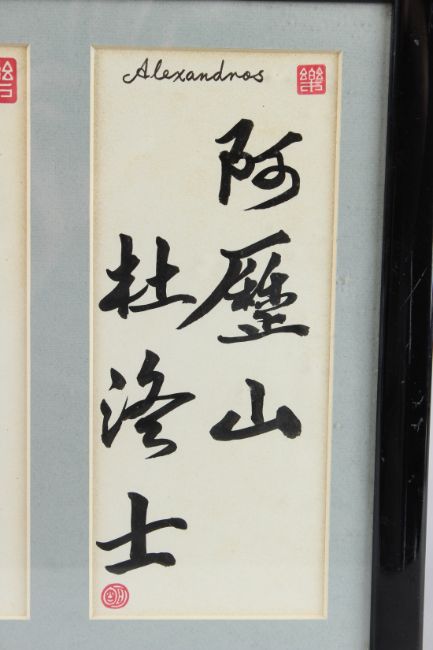 Alexandros
樂
阿歷山
杜洛士